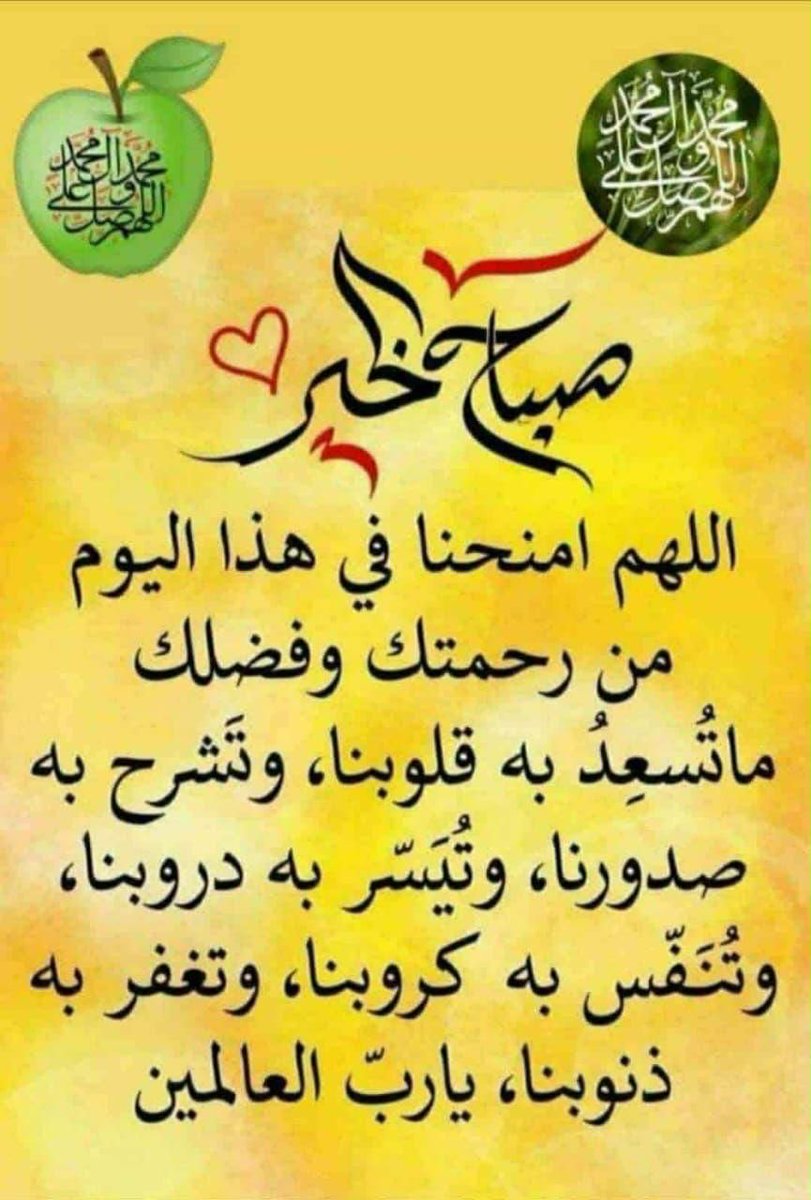 اللهم صل على محمد وآل محمد
اللهم صل على محمد وآل محمد
صباح الخير
اللهم امنحنا في هذا اليوم
من رحمتك وفضلك
ماتُسعِدُ به قلوبنا، وتَشرح به
صدورنا، وتُيَسّر به دروبنا،
وتُنَفّس به كروبنا، وتغفر به
ذنوبنا، ياربّ العالمين